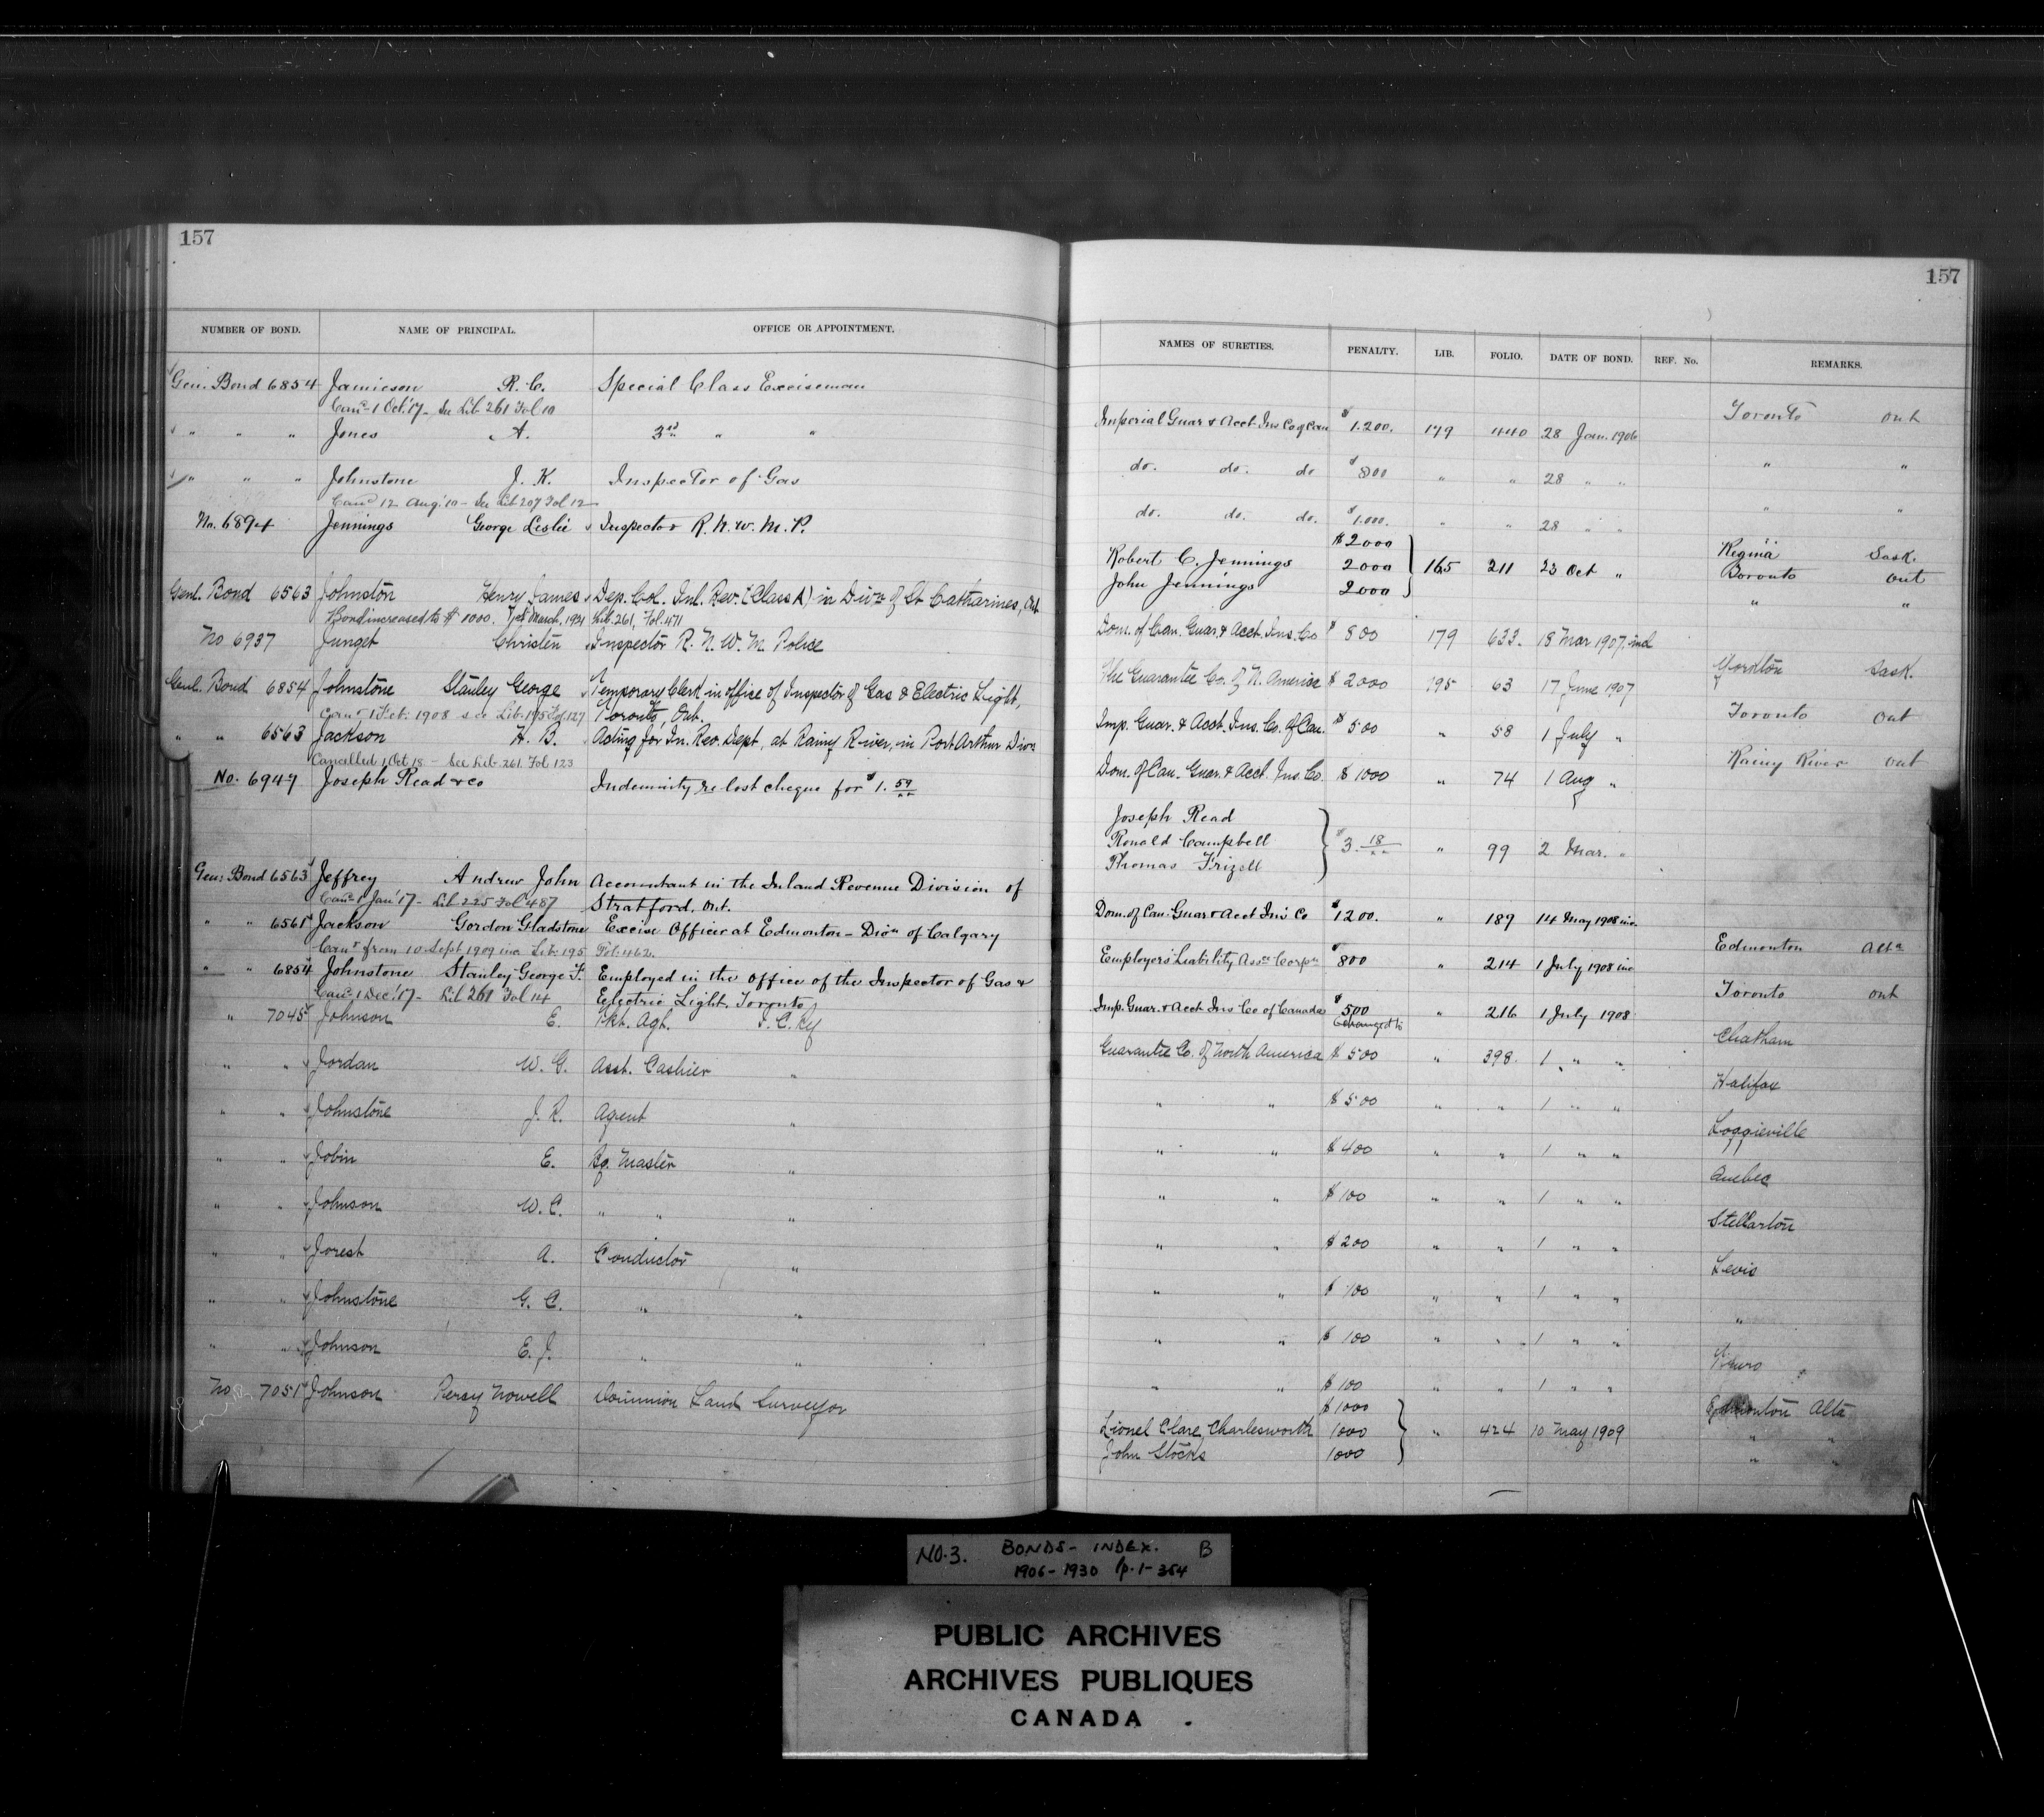 157
NUMBER OF BOND. NAME OF PRINCIPAL. OFFICE OR APPOINTMENT.
Gen. Bond 6854 Jamieson R. C. Special Class Exciseman
Canc. 1 Oct. '17 - See Lib 261 Fol 10
" " " Jones A. 3rd " "
" " " Johnstone J. K. Inspector of Gas
Canc. 12 Aug '10 - See Lib 207 Fol 12
No. 6894 Jennings George Leslie Inspector R. N. W. M. P.
Genl. Bond 6563 Johnston Henry James Dep. Col. Inl. Rev. (Class A) in Divn of St Catharines, Ont
Bond increased to $1000. 1st March, 1921 Lib. 261, Fol. 471
No 6937 Junget Christen Inspector R. N. W. M. Police
Genl. Bond 6854 Johnstone Stanley George Temporary Clerk in office of Inspector of Gas & Electric Light,
Canc. 1 Feb. 1908 see Lib. 195 Fol. 127 Toronto, Ont.
" " 6563 Jackson H. B. Acting for In. Rev. Dept, at Rainy River, in Port Arthur Divn
Cancelled 1 Oct 18 - See Lib 261 Fol 123
No. 6947 Joseph Read & Co Indemnity re lost cheque for $1. 59
Gen. Bond 6563 Jeffrey Andrew John Accountant in the Inland Revenue Division of
Canc. 1 Jan '17 - Lib 225 Fol 487 Stratford, Ont.
" " 6561 Jackson Gordon Gladstone Excise Officer at Edmonton - Divn of Calgary
Canc. from 10 Sept 1909 inc Lib. 195 Fol. 462.
" " 6854 Johnstone Stanley George F. Employed in the office of the Inspector of Gas &
Canc. 1 Dec. '17 - Lib 261 Fol 14 Electric Light, Toronto
" 7045 Johnson E. Tkt. Agt. I. C. Ry
" " Jordan W. G. Asst. Cashier "
" " Johnstone J. R. Agent "
" " Jobin E. Bg. Master "
" " Johnson W. C. " " "
" " Jorest A. Conductor "
" " Johnstone G. C. " "
" " Johnson E. J. " "
No 7051 Johnson Percy Nowell Dominion Land Surveyor
157
NAMES OF SURETIES. PENALTY. LIB. FOLIO. DATE OF BOND. REF. No. REMARKS.
Imperial Guar & Acct Ins Co of Can $1.200. 179 440 28 Jan. 1906 Toronto Ont
do. do. do $800 " " 28 " " " "
do. do. do. $1.000. " " 28 " " " "
$2000 Regina Sask.
Robert C. Jennings 2000 165 211 23 Oct " Toronto Ont
John Jennings 2000 " "
Dom. of Can. Guar. & Acct. Ins. Co $800 179 633. 18 Mar 1907, incl
The Guarantee Co. of N. America $2000 195 63 17 June 1907 Yorkton Sask.
Imp. Guar. & Acct. Ins. Co. of Can. $500 " 58 1 July " Toronto Ont
Dom. of Can. Guar. & Acct. Ins. Co. $1000 " 74 1 Aug " Rainy River Ont
Joseph Read
Ronald Campbell $3. 18 " 99 2 Mar. "
Thomas Frizell
Dom. of Can. Guar & Acct Ins Co $1200. " 189 14 May 1908 inc.
Employers' Liability Assce Corpn $800 " 214 1 July 1908 inc Edmonton Alta
Imp. Guar. & Acct Ins Co of Canada $500 " 216 1 July 1908 Toronto Ont
changed to
Guarantee Co. of North America $500 " 398 1 " " Chatham
" " $500 " " 1 " " Halifax
" " $400 " " 1 " " Loggieville
" " $100 " " 1 " " Quebec
" " $200 " " 1 " " Stellarton
" " $100 " " 1 " " Levis
" " $100 " " 1 " " "
" " $100 " " 1 " " Truro
$1000 Edmonton Alta
Lionel Clare Charlesworth 1000 " 424 10 May 1909 " "
John Stocks 1000 " "
NO. 3. BONDS - INDEX. B
1906 - 1930 p. 1 - 354
PUBLIC ARCHIVES
ARCHIVES PUBLIQUES
CANADA